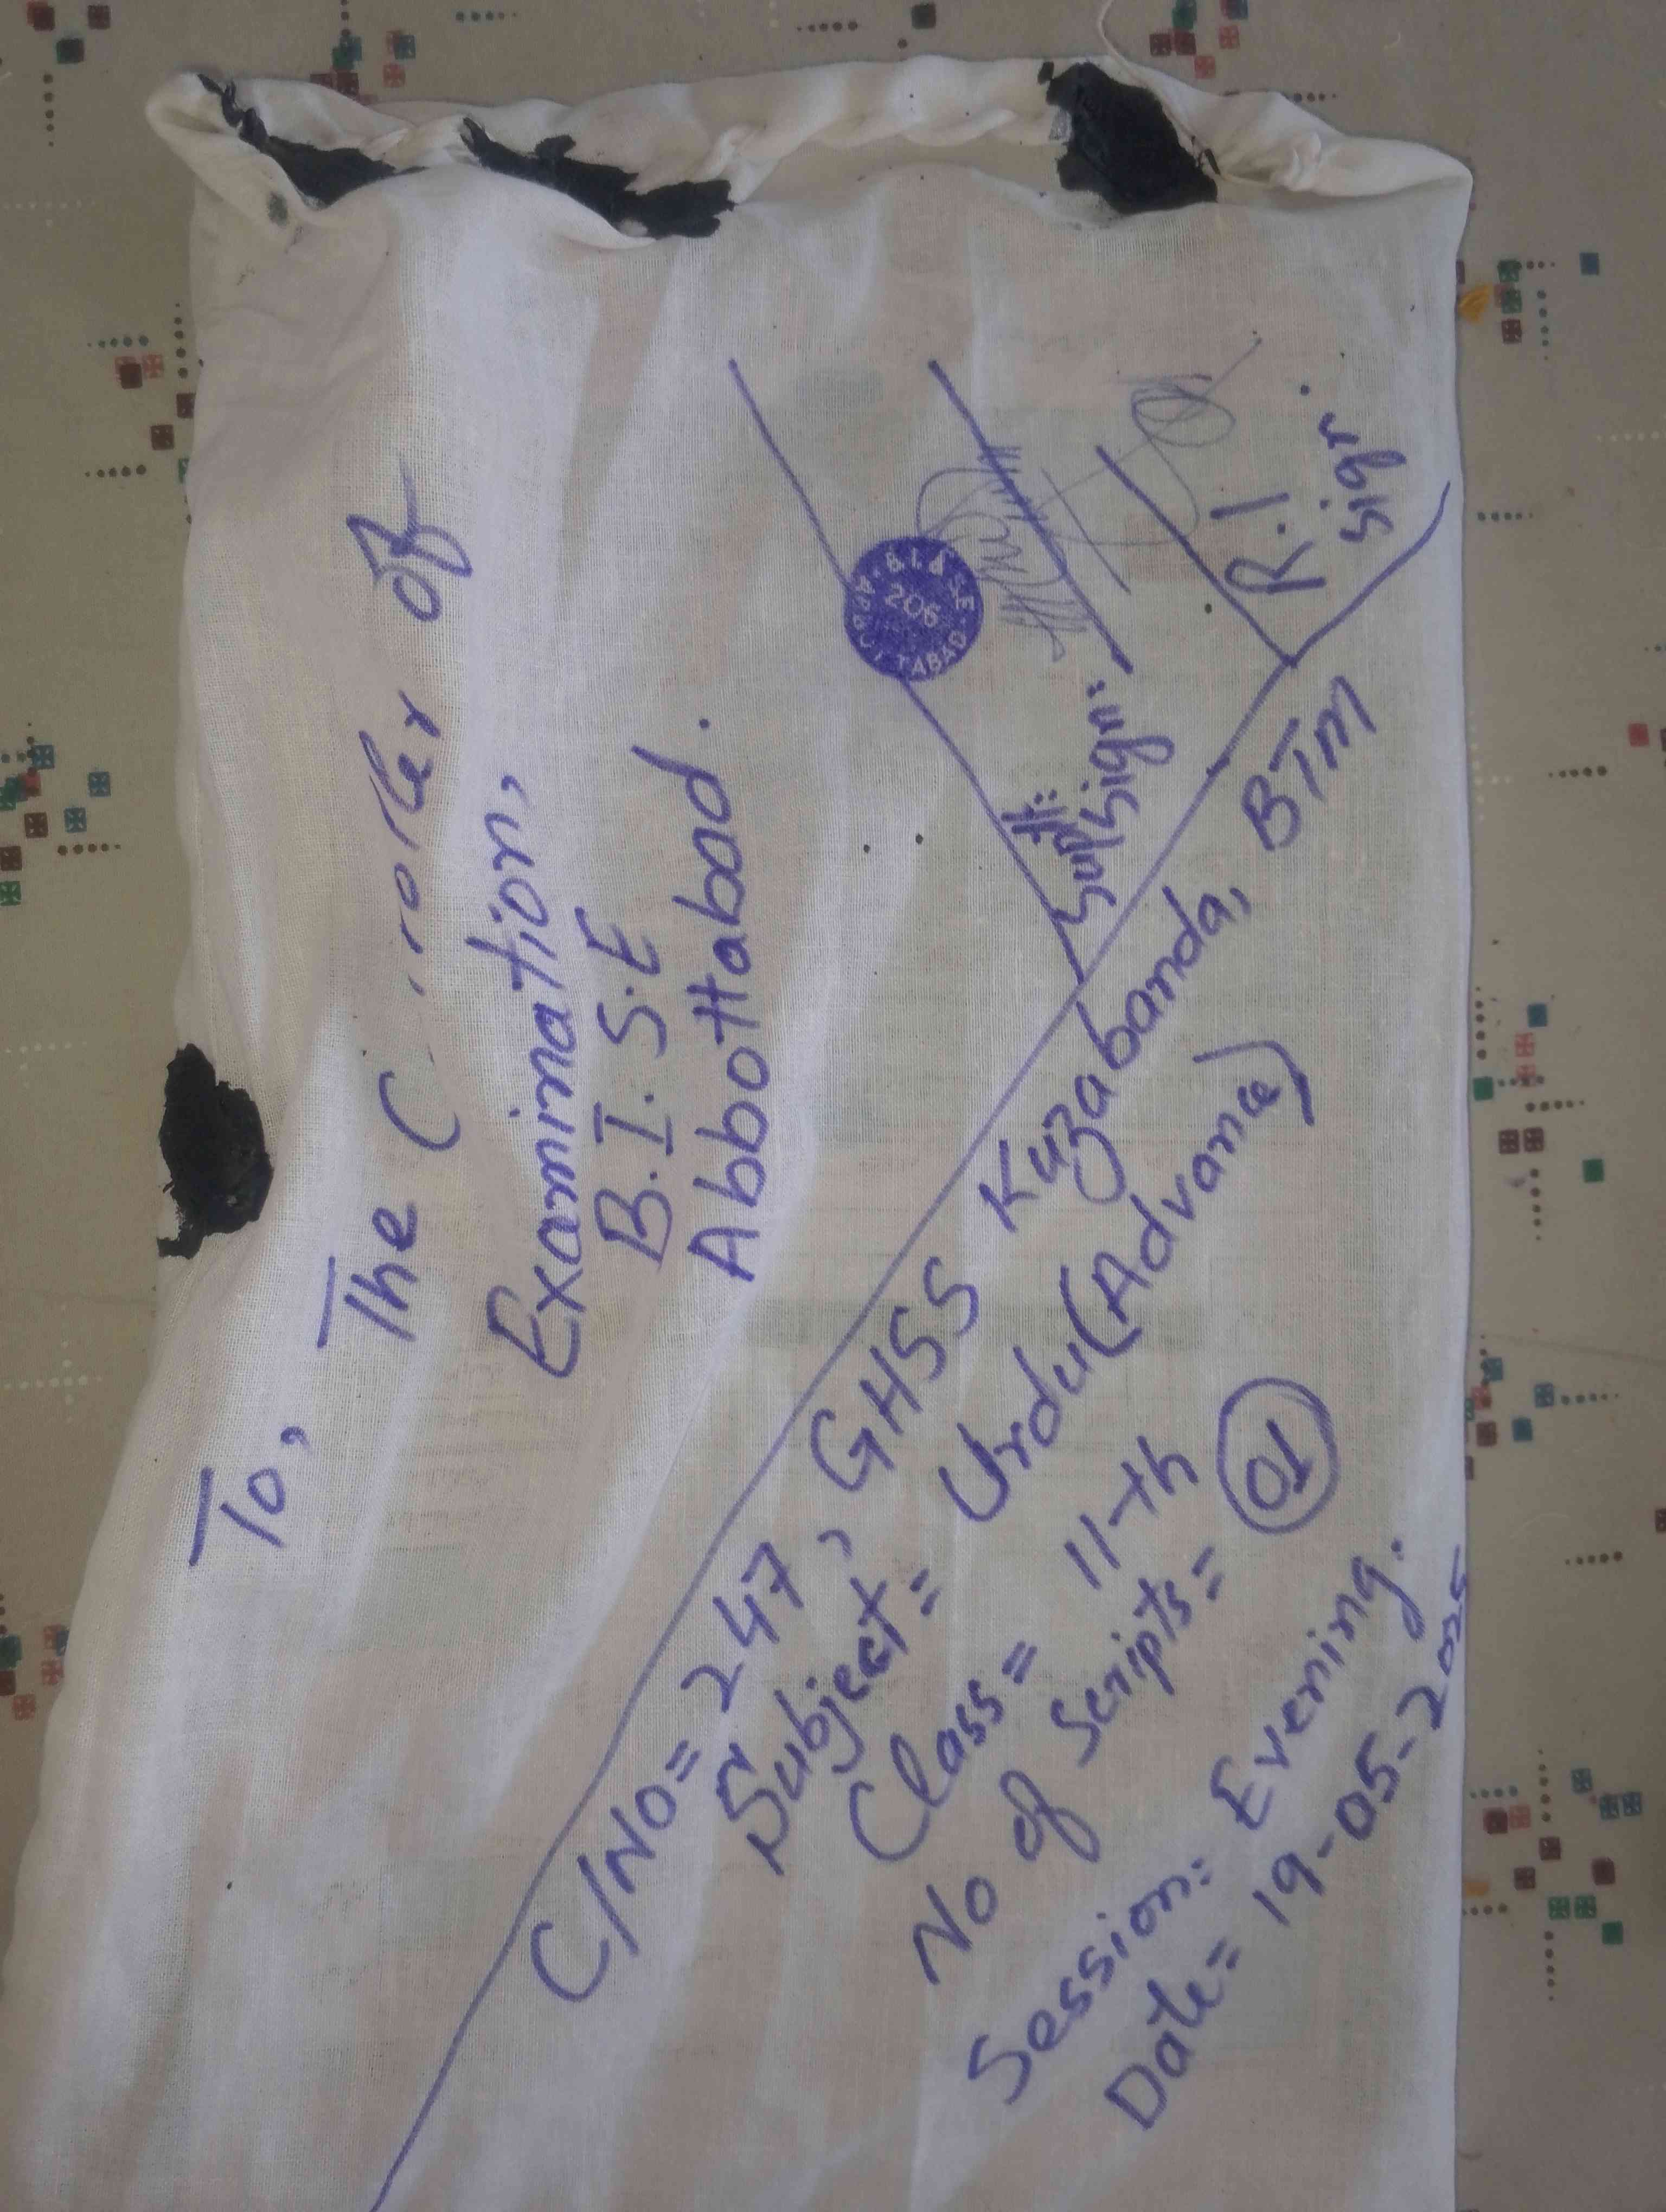 To,
The C roller of
Examination,
B.I.S.E
Abbottabad.
B.I.&.S.E
206
ABBOTTABAD
Supdtt: Sign:
R.I
Sign.
C/No= 247, GHSS Kuzabanda, BTM
Subject= Urdu(Advance)
Class= 11-th
No of Scripts= 01
Session: Evening.
Date= 19-05-2025